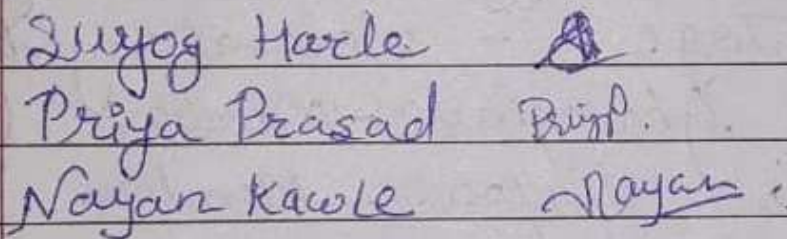 Suyog Harle
Priya Prasad PriyaP.
Nayan Kawle Nayan.